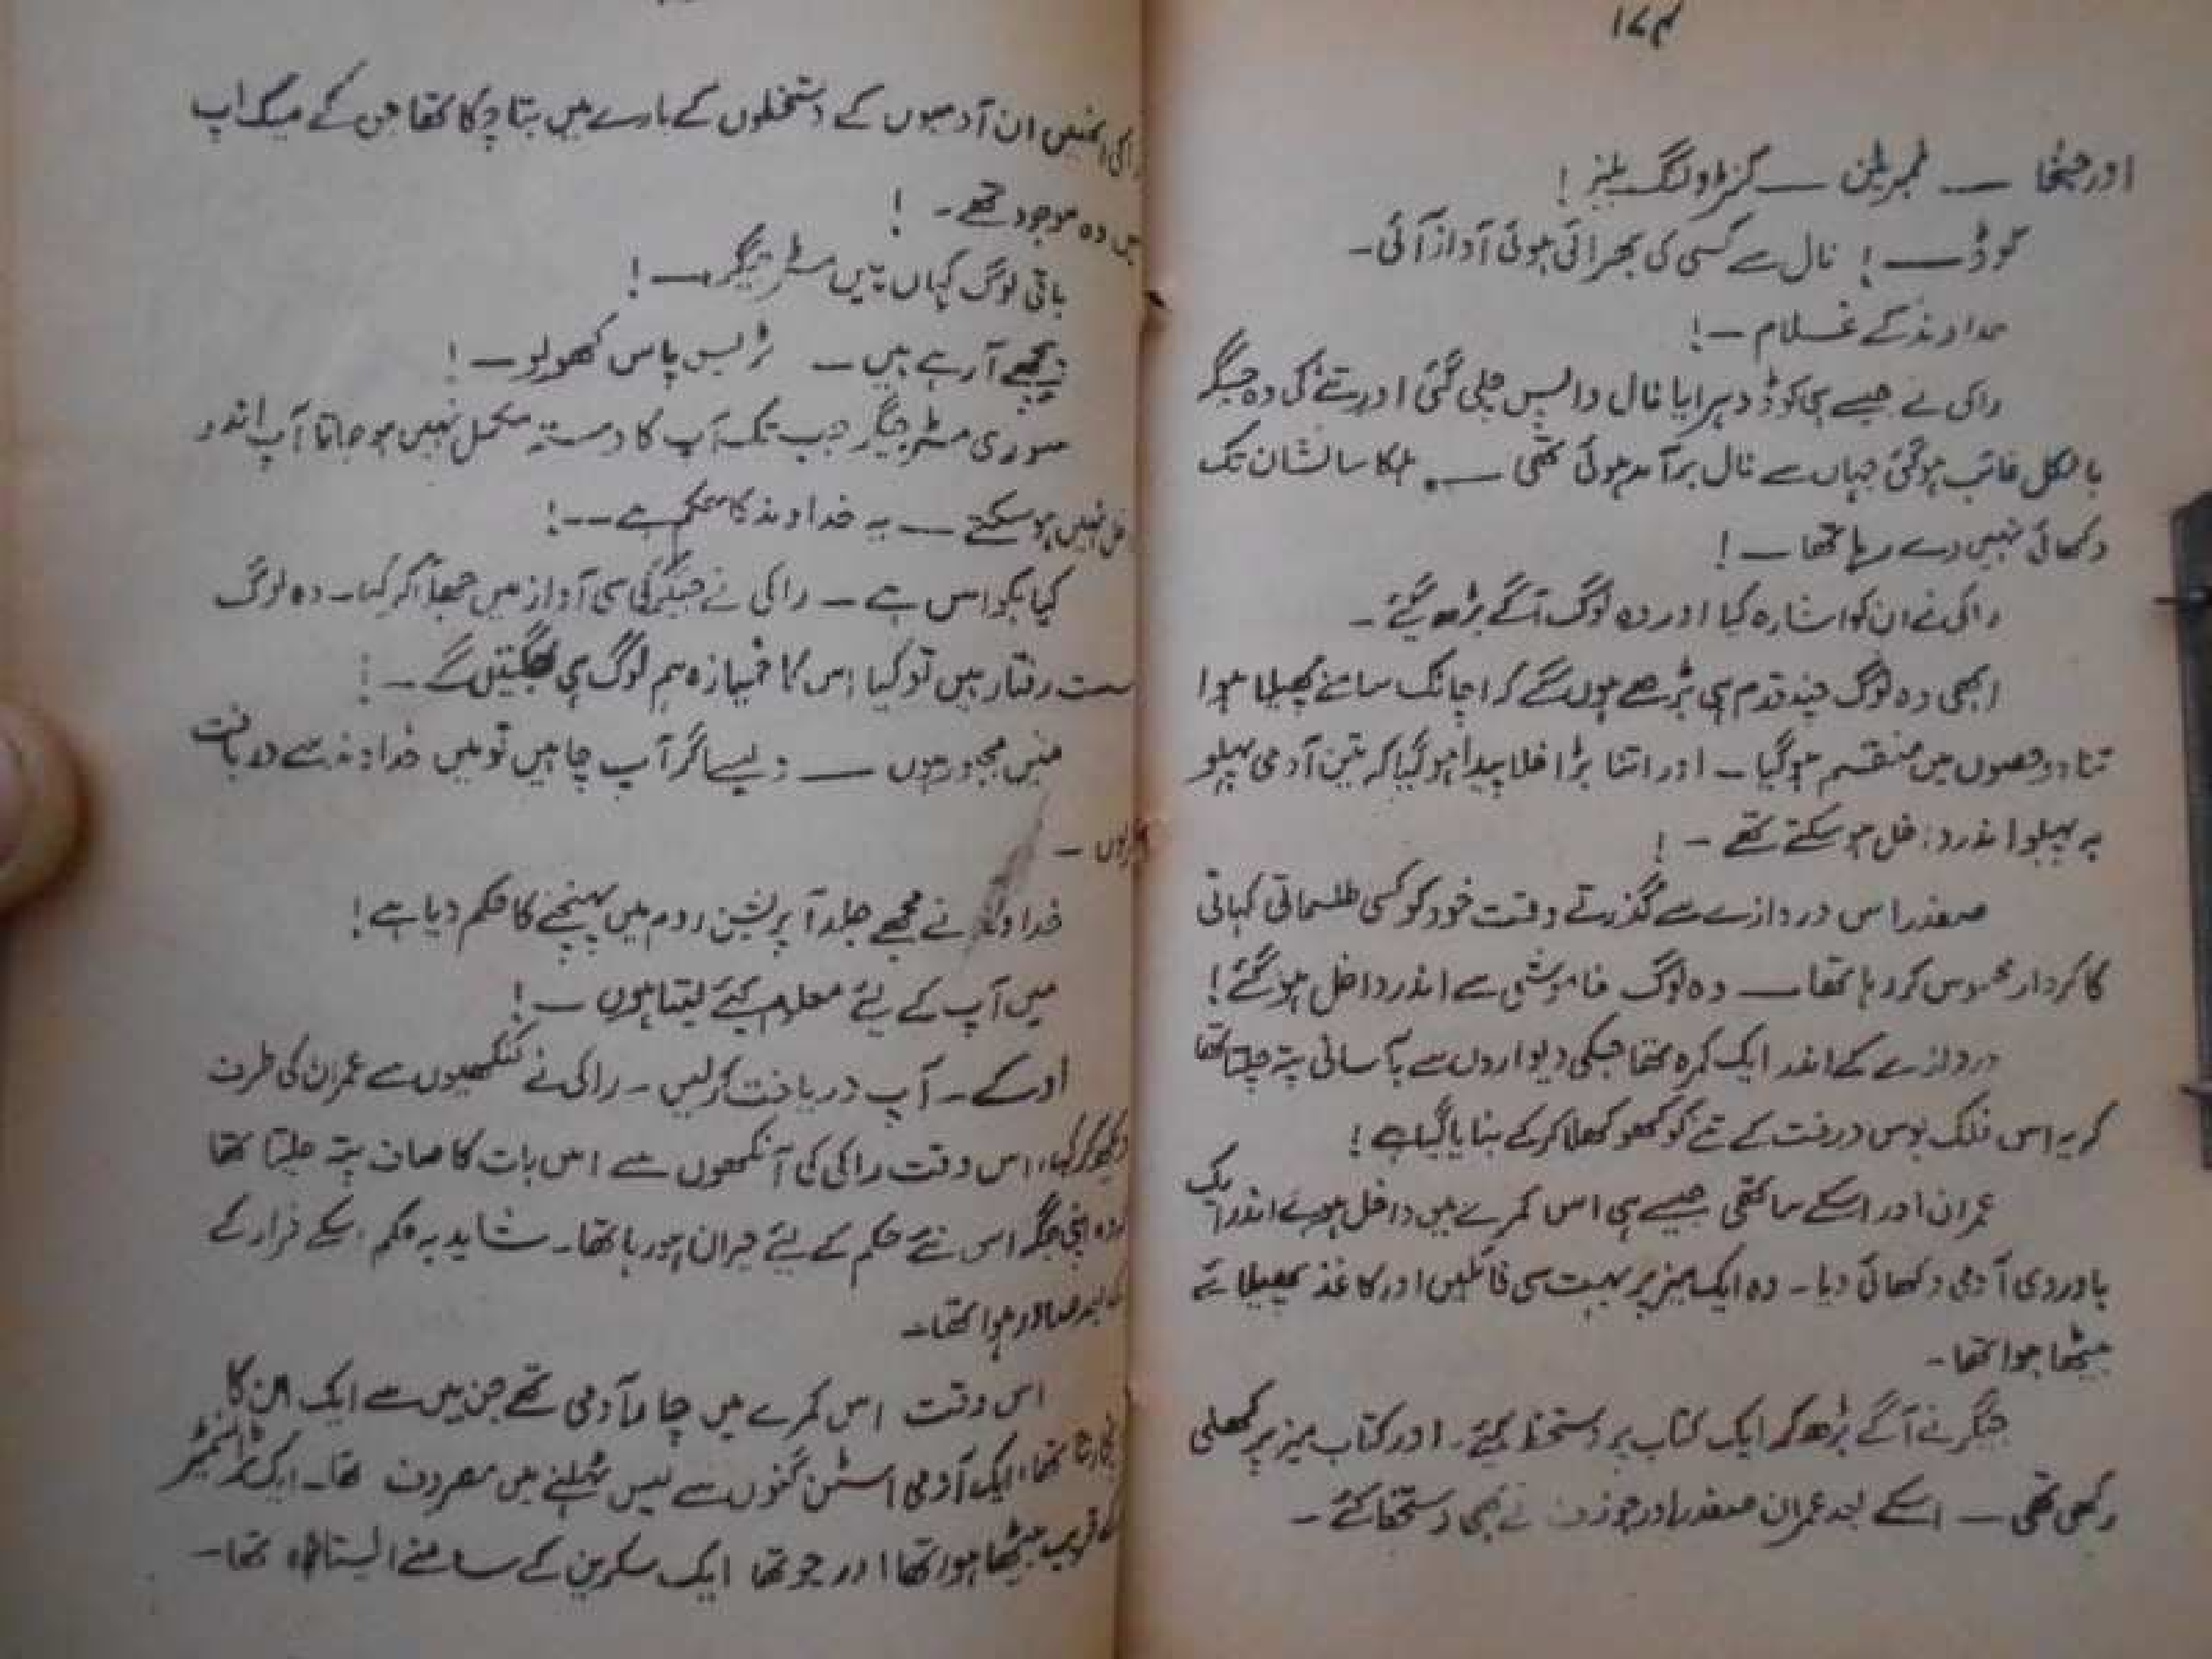 ۱۷۴
اور چیخا — نمبر پلین — کنٹرولنگ پلیز !
کوڈ — ! نال سے کسی کی بھرائی ہوئی آواز آئی ۔
خداوند کے غلام — !
راکی نے جیسے ہی کوڈ دہرایا نال واپس چلی گئی اور تنے کی وہ جگہ
بالکل غائب ہو گئی جہاں سے نال برآمد ہوئی تھی — ہلکا سا نشان تک
دکھائی نہیں دے رہا تھا — !
راکی نے ان کو اشارہ کیا اور وہ لوگ آگے بڑھ گئے ۔
ابھی وہ لوگ چند قدم ہی بڑھے ہوں گے کہ اچانک سامنے پھیلا ہوا
تنا دو حصوں میں منقسم ہو گیا — اور اتنا بڑا خلا پیدا ہو گیا کہ تین آدمی پہلو
بہ پہلو اندر داخل ہو سکتے تھے — !
صفدر اس دروازے سے گذرتے وقت خود کو کسی طلسماتی کہانی
کا کردار محسوس کر رہا تھا — وہ لوگ خاموشی سے اندر داخل ہو گئے !
دروازے کے اندر ایک کمرہ تھا جسکی دیواروں سے بآسانی پتہ چلتا تھا
کہ یہ اس فلک بوس درخت کے تنے کو کھوکھلا کر کے بنایا گیا ہے !
عمران اور اسکے ساتھی جیسے ہی اس کمرے میں داخل ہوئے اندر ایک
باوردی آدمی دکھائی دیا — وہ ایک میز پر بہت سی فائلیں اور کاغذ پھیلائے
بیٹھا ہوا تھا ۔
جیگر نے آگے بڑھ کر ایک کتاب پر دستخط کیئے ۔ اور کتاب میز پر کھلی
رکھی تھی — اسکے بعد عمران صفدر اور جوزف نے بھی دستخط کئے ۔
راکی انھیں ان آدمیوں کے دستخطوں کے بارے میں بتا چکا تھا جن کے میک اپ
میں وہ موجود تھے ۔ !
باقی لوگ کہاں ہیں مسٹر جیگر — !
پیچھے آ رہے ہیں — پاس کھولو — !
سوری مسٹر جیگر جب تک آپ کا دستہ مکمل نہیں ہو جاتا آپ اندر
نہیں ہو سکتے — یہ خداوند کا حکم ہے — !
کیا بکواس ہے — راکی نے جیگر کی سی آواز میں جھلا کر کہا۔ وہ لوگ
سست رفتار ہیں تو کیا اس کا خمیازہ ہم لوگ ہی بھگتیں گے — !
میں مجبور ہوں — ویسے اگر آپ چاہیں تو میں خداوند سے دریافت
کروں —
خداوند نے مجھے جلد آپریشن روم میں پہنچنے کا حکم دیا ہے !
میں آپ کے لئے معلوم کیئے لیتا ہوں — !
اوکے — آپ دریافت کر لیں — راکی نے کنکھیوں سے عمران کی طرف
دیکھ کر کہا، اس وقت راکی کی آنکھوں سے اس بات کا صاف پتہ چلتا تھا
کہ وہ اپنی جگہ اس نئے حکم کے لئے حیران ہو رہا تھا۔ شاید یہ حکم اسکے فرار کے
بعد صادر ہوا تھا —
اس وقت اس کمرے میں چار آدمی تھے جن میں سے ایک ان کا
تھا، ایک آدمی اسٹن گنوں سے لیس ٹہلنے میں مصروف تھا۔ ایک ٹرانسمیٹر
کے قریب بیٹھا ہوا تھا اور چوتھا ایک سکرین کے سامنے ایستادہ تھا —